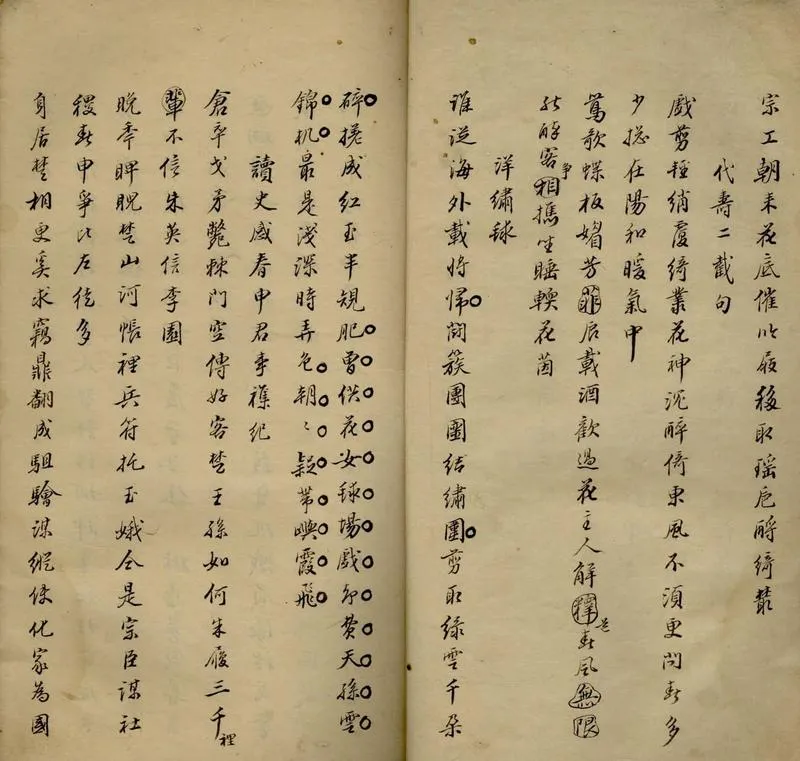 宗工朝来花底催以殷移取瑶卮酹绮丛
代壽二截句
戲剪輕綃覆綺叢花神沉醉倚東風不須更問春多
少摠在陽和暖氣中
鶯歌蝶板媚芳菲启載酒歡過花主人解釋是春風無限
能醉客相爭攜坐睡輭花茵
洋繡毬
誰從海外載将歸閗簇團圞結繡圍剪取綠雲千朶
碎搓成紅玉半規肥曾供花女毬場戲却費天孫雲
錦机最是淺深時弄色朝〻疑帶嶼霞飛
讀史感春申君事襍紀
倉卒戈矛斃棘門空傳好客楚王孫如何朱履三千裡
輩不信朱英信李園
晚季睥睨楚山河帳裡兵符托玉娥仝是宗臣謀社
稷春申爭比左徒多
身居楚相更奚求竊鼎翻成駔驓謀縱使化家為國